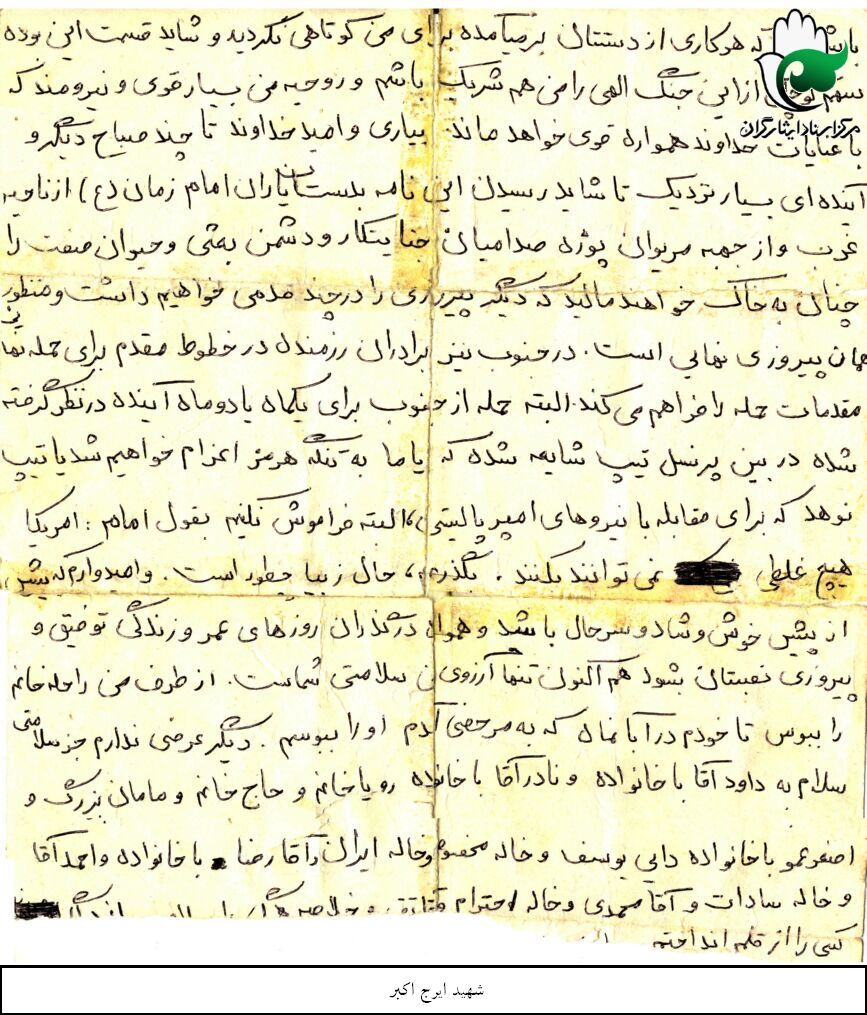 که هرکاری از دستتان برمیآمده برای من کوتاهی نکردید و شاید قسمت این بوده
سهم کوچکی از این جنگ الهی را من هم شریک باشم و روحیه من بسیار قوی و نیرومند که
با عنایات خداوند همواره قوی خواهد ماند. بیاری و امید خداوند تا چند صباح دیگر و
آینده ای بسیار نزدیک تا شاید رسیدن این نامه بدستتان یاران امام زمان (ع) از ناحیه
غرب و از جبهه مریوان پوزه صدامیان جنایتکار و دشمن بعثی و حیوان صفت را
چنان به خاک خواهند مالید که دیگر پیروزی را در چند قدمی خواهیم داشت و منظور نیز
همان پیروزی نهایی است. در جنوب نیز برادران رزمنده در خطوط مقدم برای حمله
مقدمات حمله را فراهم می کند. البته حمله از جنوب برای یکماه یا دو ماه آینده در نظر گرفته
شده در بین پرنسل تیپ شایعه شده که یا ما به تنگه هرمز اعزام خواهیم شد یا تیپ
نوهد که برای مقابله با نیروهای امپریالیستی، البته فراموش نکنیم بقول امام: امریکا
هیچ غلطی نمی توانند بکنند. بگذریم، حال زیبا چطور است. و امیدوارم که بیش
از پیش خوش و شاد و سرحال باشد و همواره در گذران روزهای عمر و زندگی توفیق و
پیروزی نصیبتان بشود هم اکنون تنها آرزوی من سلامتی شماست. از طرف من راحله خانم
را ببوس تا خودم در آبانماه که به مرخصی آمدم او را ببوسم. دیگر عرضی ندارم جز سلامتی
سلام به داود آقا با خانواده و نادر آقا با خانواده رویا خانم و حاج خانم و مامان بزرگ و
اصغر عمو با خانواده دایی یوسف و خاله معصومه و خاله ایران و آقا رضا با خانواده و احمد آقا
و خاله سادات و آقا مهدی و خاله احترام و خلاصه
کسی را از قلم انداختم
مرکز اسناد ایثارگران
شهید ایرج اکبر